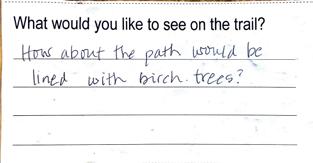 What would you like to see on the trail?
How about the path would be
lined with birch trees?